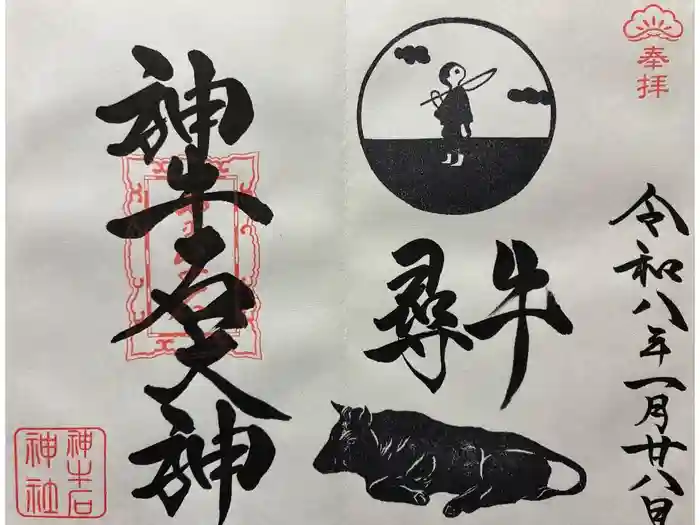 奉拝
令和八年一月廿八日
尋牛
神牛石大神
神牛石
神社